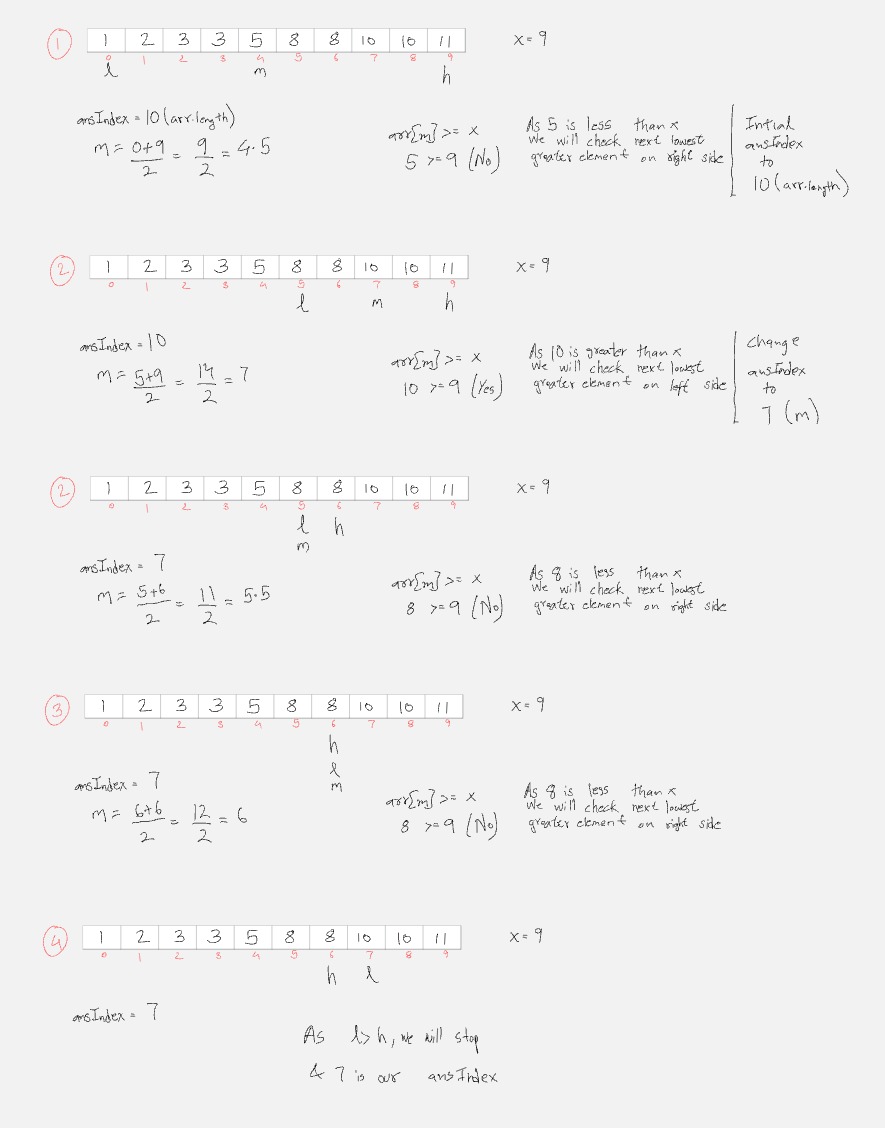 1
1 2 3 3 5 8 8 10 10 11
x = 9
0 1 2 3 4 5 6 7 8 9
l m h
ansIndex = 10 (arr.length)
m = 0+9/2 = 9/2 = 4.5
arr[m] >= x
5 >= 9 (No)
As 5 is less than x
We will check next lowest
greater element on right side
Intial
ansIndex
to
10 (arr.length)
2
1 2 3 3 5 8 8 10 10 11
x = 9
0 1 2 3 4 5 6 7 8 9
l m h
ansIndex = 10
m = 5+9/2 = 14/2 = 7
arr[m] >= x
10 >= 9 (Yes)
As 10 is greater than x
We will check next lowest
greater element on left side
change
ansIndex
to
7 (m)
2
1 2 3 3 5 8 8 10 10 11
x = 9
0 1 2 3 4 5 6 7 8 9
l h
m
ansIndex = 7
m = 5+6/2 = 11/2 = 5.5
arr[m] >= x
8 >= 9 (No)
As 8 is less than x
We will check next lowest
greater element on right side
3
1 2 3 3 5 8 8 10 10 11
x = 9
0 1 2 3 4 5 6 7 8 9
h
l
m
ansIndex = 7
m = 6+6/2 = 12/2 = 6
arr[m] >= x
8 >= 9 (No)
As 8 is less than x
We will check next lowest
greater element on right side
4
1 2 3 3 5 8 8 10 10 11
x = 9
0 1 2 3 4 5 6 7 8 9
h l
ansIndex = 7
As l > h, we will stop
& 7 is our ansIndex